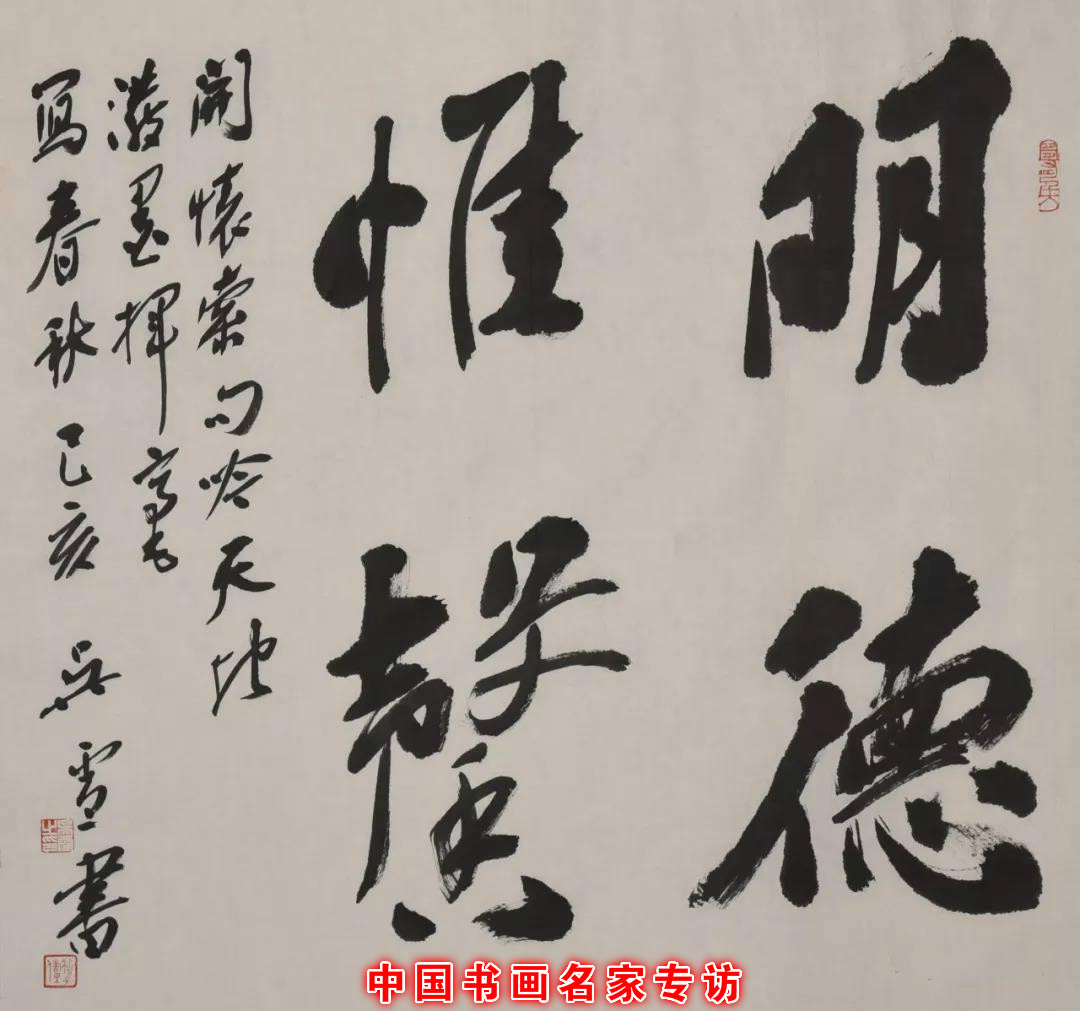 明德
惟馨
開懷索句吟天地
潑墨揮毫
寫春秋 己亥 吳雪書
中国书画名家专访